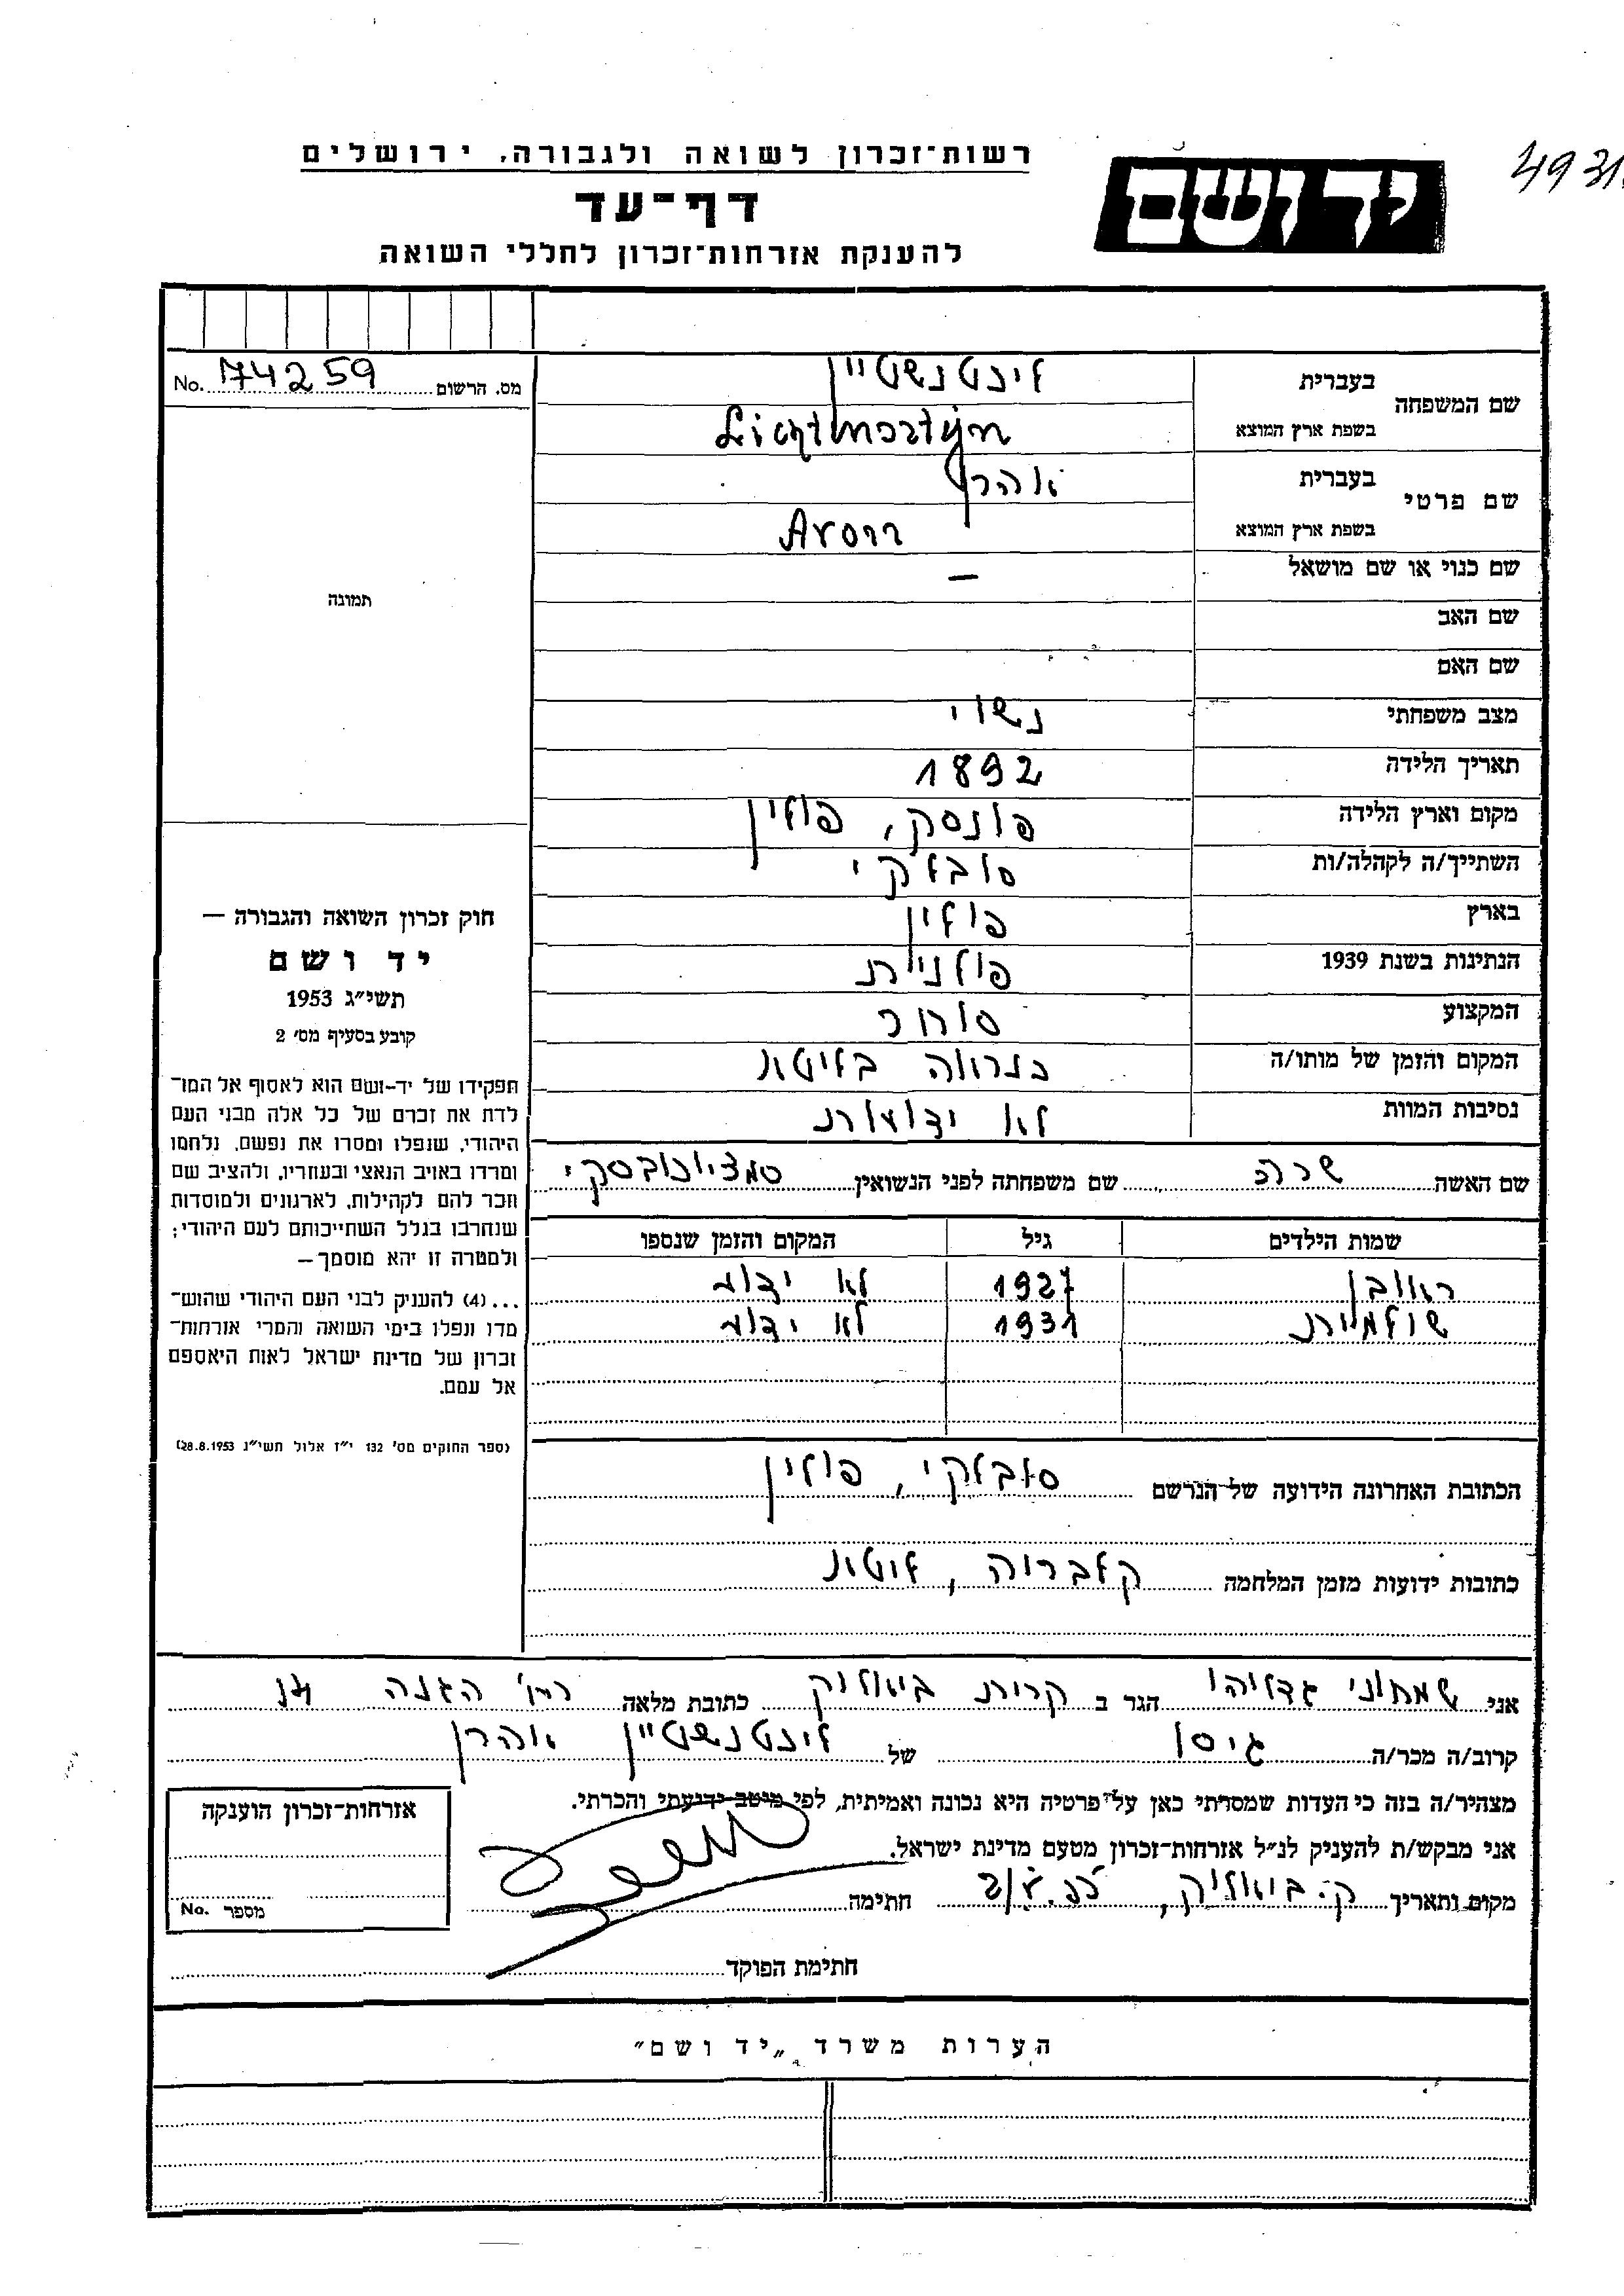 4931
יד ושם
רשות־זכרון לשואה ולגבורה, ירושלים
דף־עד
להענקת אזרחות־זכרון לחללי השואה
No. 174259 מס. הרשום
תמונה
שם המשפחה בעברית ליכטנשטיין
בשפת ארץ המוצא Lichtensztejn
שם פרטי בעברית אהרן
בשפת ארץ המוצא Aron
שם כנוי או שם מושאל –
שם האב
שם האם
מצב משפחתי נשוי
תאריך הלידה 1892
מקום וארץ הלידה פונסק, פולין
השתייך/ה לקהלה/ות סובלקי
בארץ פולין
הנתינות בשנת 1939 פולנית
המקצוע סוחר
המקום והזמן של מותו/ה כנראה בליטא
נסיבות המוות לא ידועות
שם האשה שרה שם משפחתה לפני הנשואין
שמות הילדים גיל המקום והזמן שנספו
ראובן 1927 לא ידוע
שולמית 1931 לא ידוע
הכתובת האחרונה הידועה של הנרשם סובלקי, פולין
כתובות ידועות מזמן המלחמה קלבריה, ליטא
חוק זכרון השואה והגבורה —
יד ושם
תשי״ג 1953
קובע בסעיף מס׳ 2
תפקידו של יד־ושם הוא לאסוף אל המו־
לדת את זכרם של כל אלה מבני העם
היהודי, שנפלו ומסרו את נפשם, נלחמו
ומרדו באויב הנאצי ובעוזריו, ולהציב שם
וזכר להם לקהילות, לארגונים ולמוסדות
שנחרבו בגלל השתייכותם לעם היהודי;
ולמטרה זו יהא מוסמך —
...(4) להעניק לבני העם היהודי שהוש־
מדו ונפלו בימי השואה והמרי אזרחות־
זכרון של מדינת ישראל לאות היאספם
אל עמם.
(ספר החוקים מס׳ 132 י״ז אלול תשי״ג 28.8.1953)
אני שמחוני גדליהו הגר ב קרית ביאליק כתובת מלאה רח׳ הגנה
קרוב/ה מכר/ה גיסו של ליכטנשטיין אהרן
מצהיר/ה בזה כי העדות שמסרתי כאן על פרטיה היא נכונה ואמיתית, לפי מיטב ידיעתי והכרתי.
אני מבקש/ת להעניק לנ״ל אזרחות־זכרון מטעם מדינת ישראל.
מקום ותאריך ק. ביאליק, חתימה
חתימת הפוקד
אזרחות־זכרון הוענקה
מספר No.
הערות משרד „יד ושם״